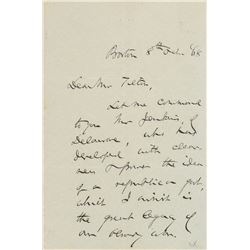 Boston 8th Feb. '68
Dear Mr Tilton,
Let me commend
to you Mr Jenkins, of
Delaware, who has
developed with clear-
ness & power the idea
of a republican govt,
which I think is
the great legacy of
our bloody war.